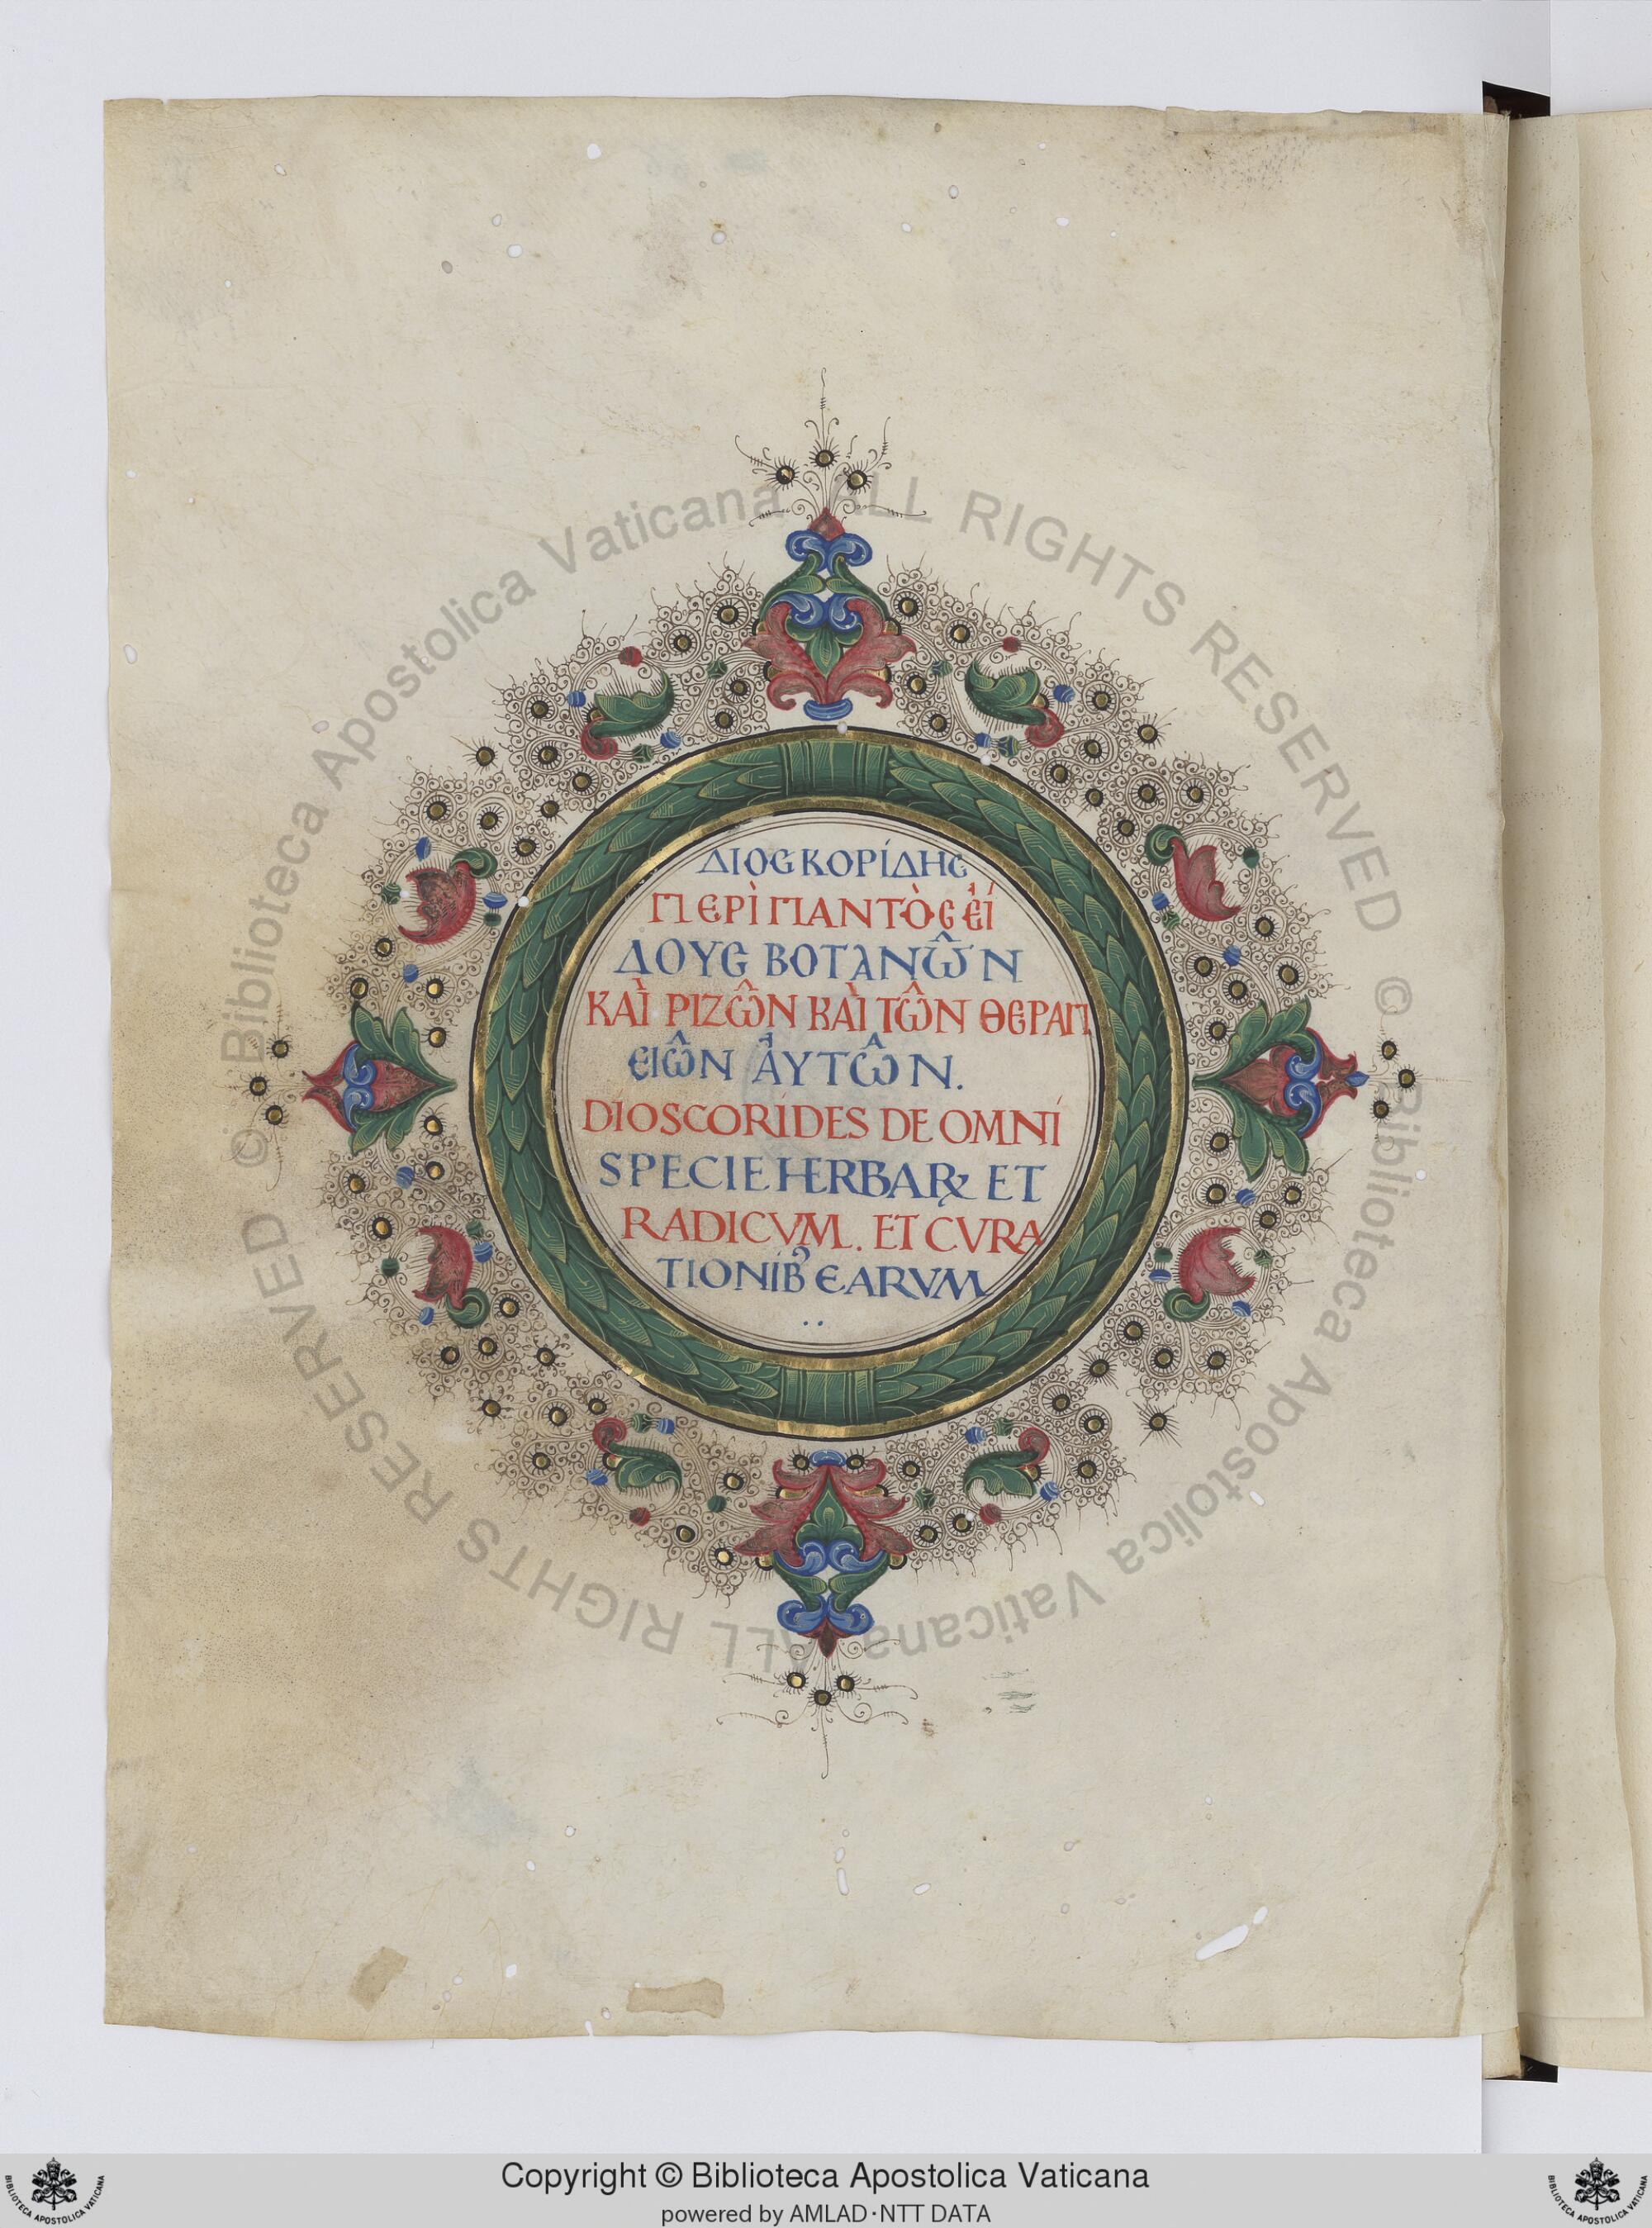 ΔΙΟϹΚΟΡΊΔΗϹ
ΠΕΡῚ ΠΑΝΤῸϹ ἘΊ
ΔΟΥϹ ΒΟΤΑΝῶΝ
ΚΑῚ ΡΙΖῶΝ ΚΑῚ ΤῶΝ ΘΕΡΑΠ
ΕΙῶΝ ἈΥΤῶΝ.
DIOSCORÍDES DE OMNÍ
SPECIE HERBAꝜ ET
RADICVM. ET CVRA
TIONÍBꝰ EARVM
..
© Biblioteca Apostolica Vaticana ALL RIGHTS RESERVED © Biblioteca Apostolica Vaticana ALL RIGHTS RESERVED
Copyright © Biblioteca Apostolica Vaticana
powered by AMLAD·NTT DATA
BIBLIOTECA APOSTOLICA VATICANA
BIBLIOTECA APOSTOLICA VATICANA